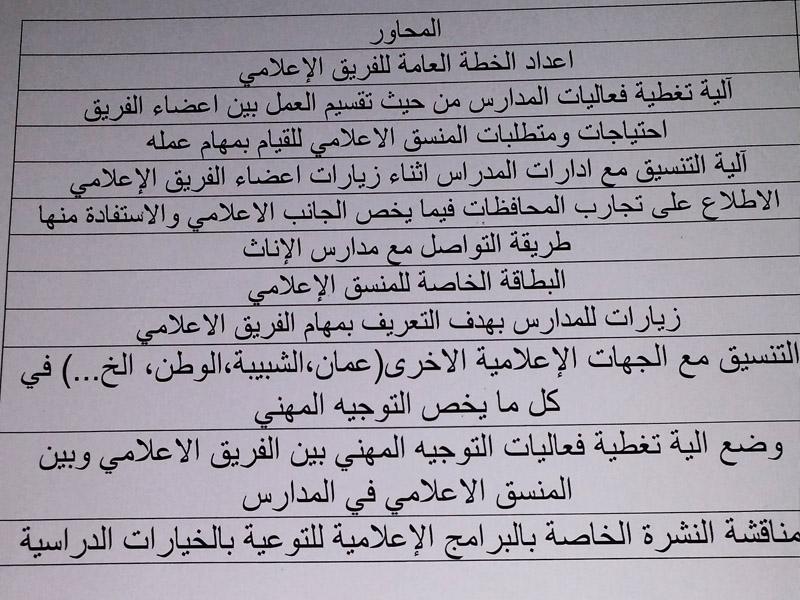 المحاور
اعداد الخطة العامة للفريق الإعلامي
آلية تغطية فعاليات المدارس من حيث تقسيم العمل بين اعضاء الفريق
احتياجات ومتطلبات المنسق الاعلامي للقيام بمهام عمله
آلية التنسيق مع ادارات المدراس اثناء زيارات اعضاء الفريق الإعلامي
الاطلاع على تجارب المحافظات فيما يخص الجانب الاعلامي والاستفادة منها
طريقة التواصل مع مدارس الإناث
البطاقة الخاصة للمنسق الإعلامي
زيارات للمدارس بهدف التعريف بمهام الفريق الاعلامي
التنسيق مع الجهات الإعلامية الاخرى(عمان،الشبيبة،الوطن، الخ...) في
كل ما يخص التوجيه المهني
وضع الية تغطية فعاليات التوجيه المهني بين الفريق الاعلامي وبين
المنسق الاعلامي في المدارس
مناقشة النشرة الخاصة بالبرامج الإعلامية للتوعية بالخيارات الدراسية